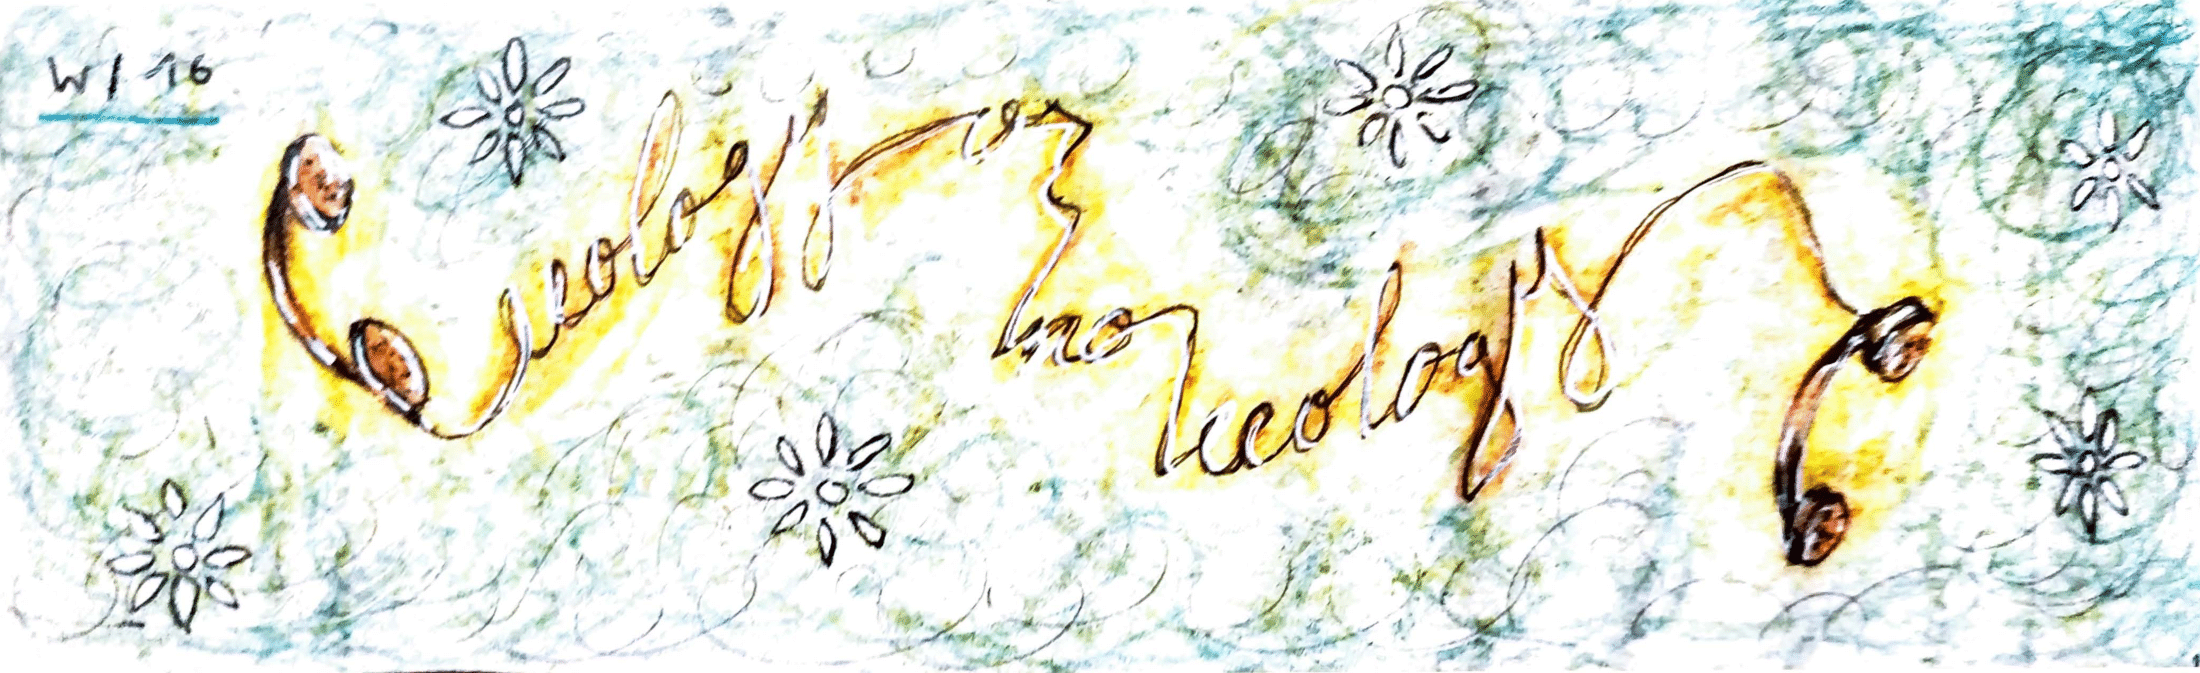 W/ 16
ecology or
no ecology